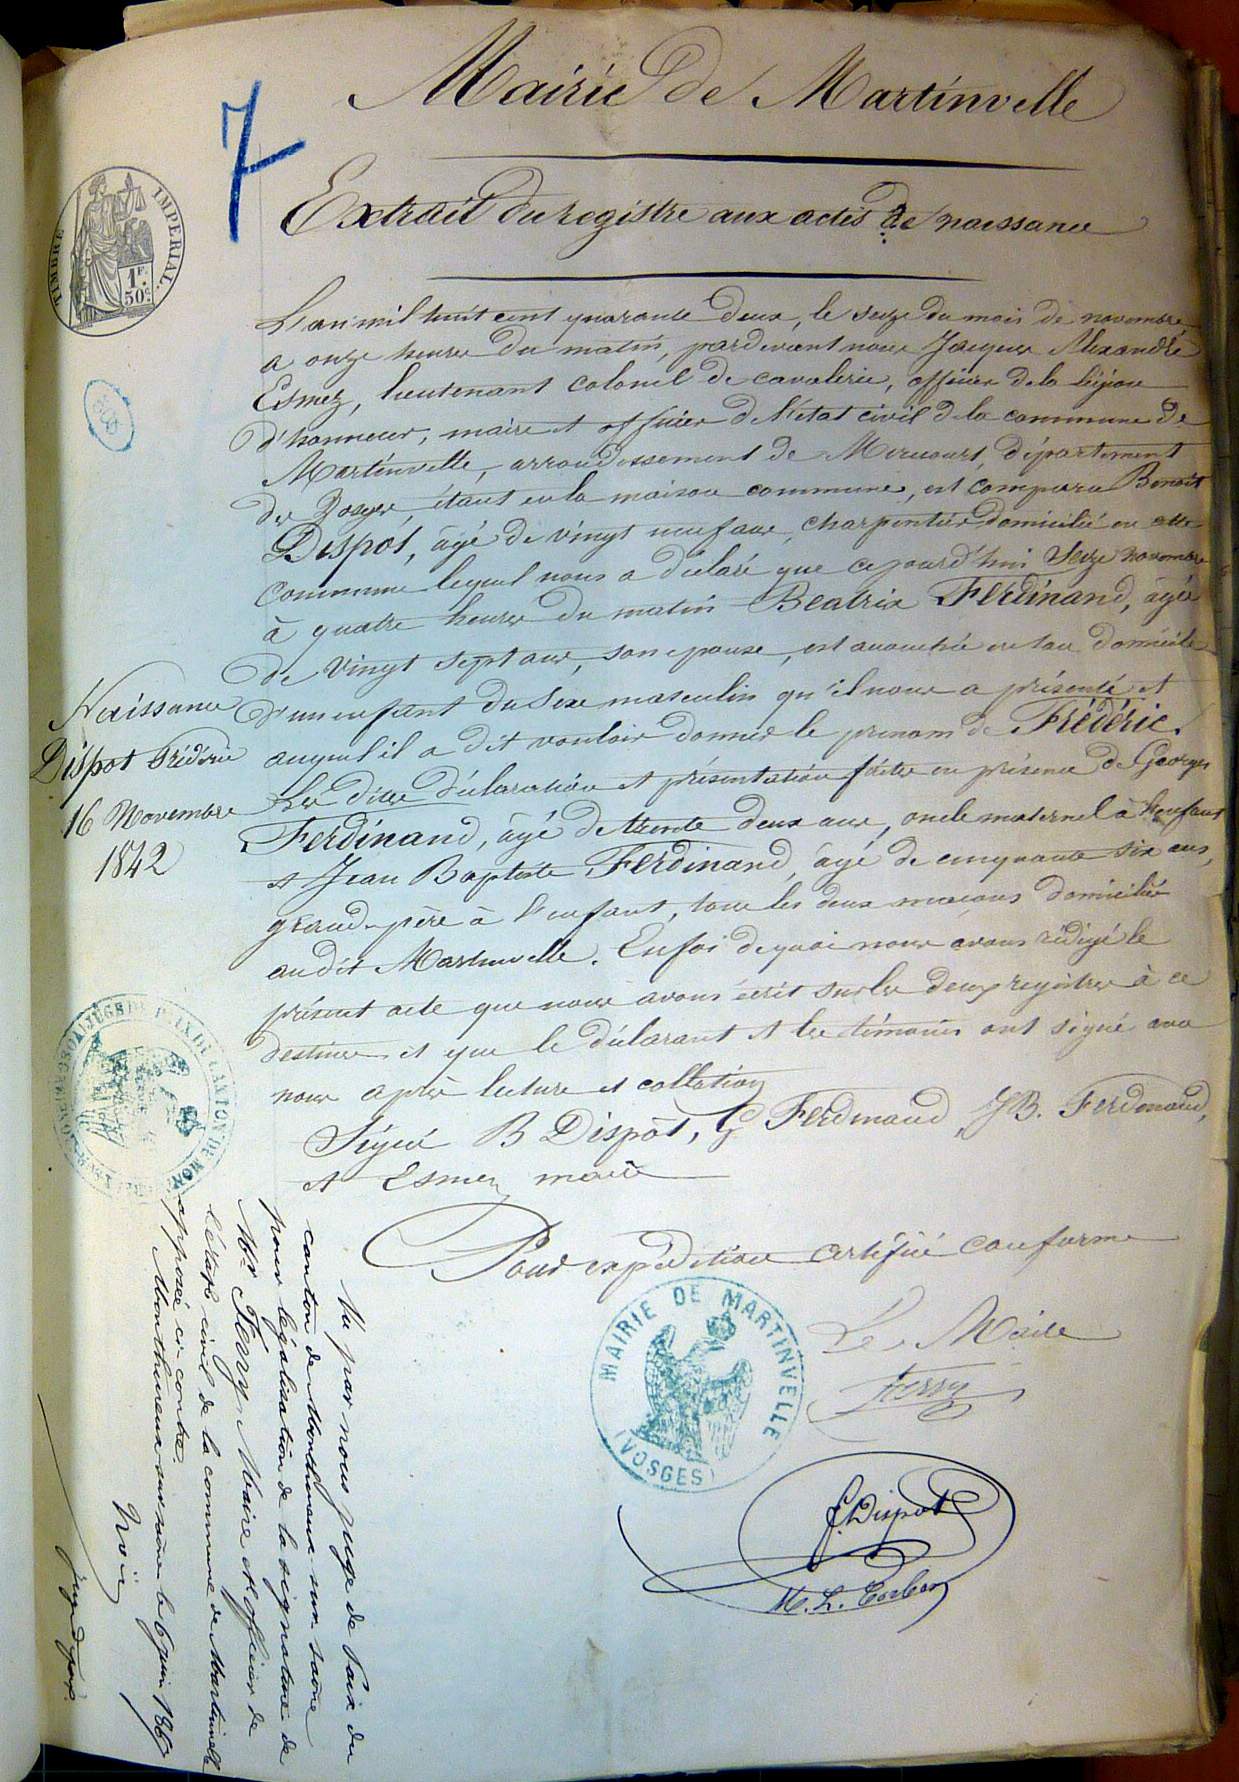 Mairie de Martinvelle
7
Extrait du registre aux actes de naissance
TIMBRE IMPERIAL.
1F.
50c
L'an mil huit cent quarante deux, le seize du mois de novembre
a onze heures du matin, pardevant nous Jacques Alexandre
Esmez, lieutenant colonel de cavalerie, officier de la Légion
d'honneur, maire et officier de l'état civil de la commune de
Martinvelle, arrondissement de Mirecourt, département
des Vosges, étant en la maison commune, est comparu Benoit
Dispôt, âgé de vingt neuf ans, charpentier domicilié en cette
commune lequel nous a déclaré que cejourd'hui seize novembre
à quatre heures du matin Beatrix Ferdinand, âgée
de vingt sept ans, son epouse, est accouchée en son domicile
d'un enfant du sexe masculin qu'il nous a présenté et
auquel il a dit vouloir donner le prenom de Frédéric.
Les dites déclaration et présentation faites en présence de Georges
Ferdinand, âgé de trente deux ans, oncle maternel à l'enfant
et Jean Baptiste Ferdinand, âgé de cinquante six ans,
grand-père à l'enfant, tous les deux maçons domiciliés
audit Martinvelle. En foi de quoi nous avons rédigé le
présent acte que nous avons écrit sur les deux registres à ce
destinés et que le déclarant et les témoins ont signé avec
nous après lecture et collation
Signé B Dispôt, G Ferdinand, JB. Ferdinand,
et Esmez maire
Naissance
Dispot Frédéric
16 Novembre
1842
Pour expédition certifié conforme
Le Maire
Ferry
MAIRIE DE MARTINVELLE
(VOSGES)
F. Dispot
M. L.
Vu par nous juge de Paix du
canton de Monthureux sur saône
pour légalisation de la signature de
Mr Ferry, Maire et officier de
l'état civil de la commune de Martinvelle
apposée ci contre
Monthureux sur saône le 6 juin
juge de paix